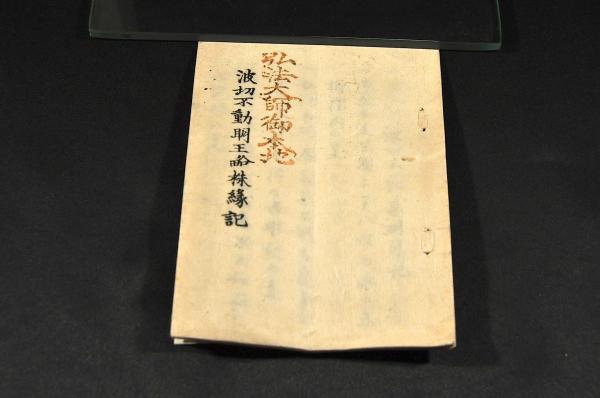 弘法大師御本地
波切不動明王略株縁記